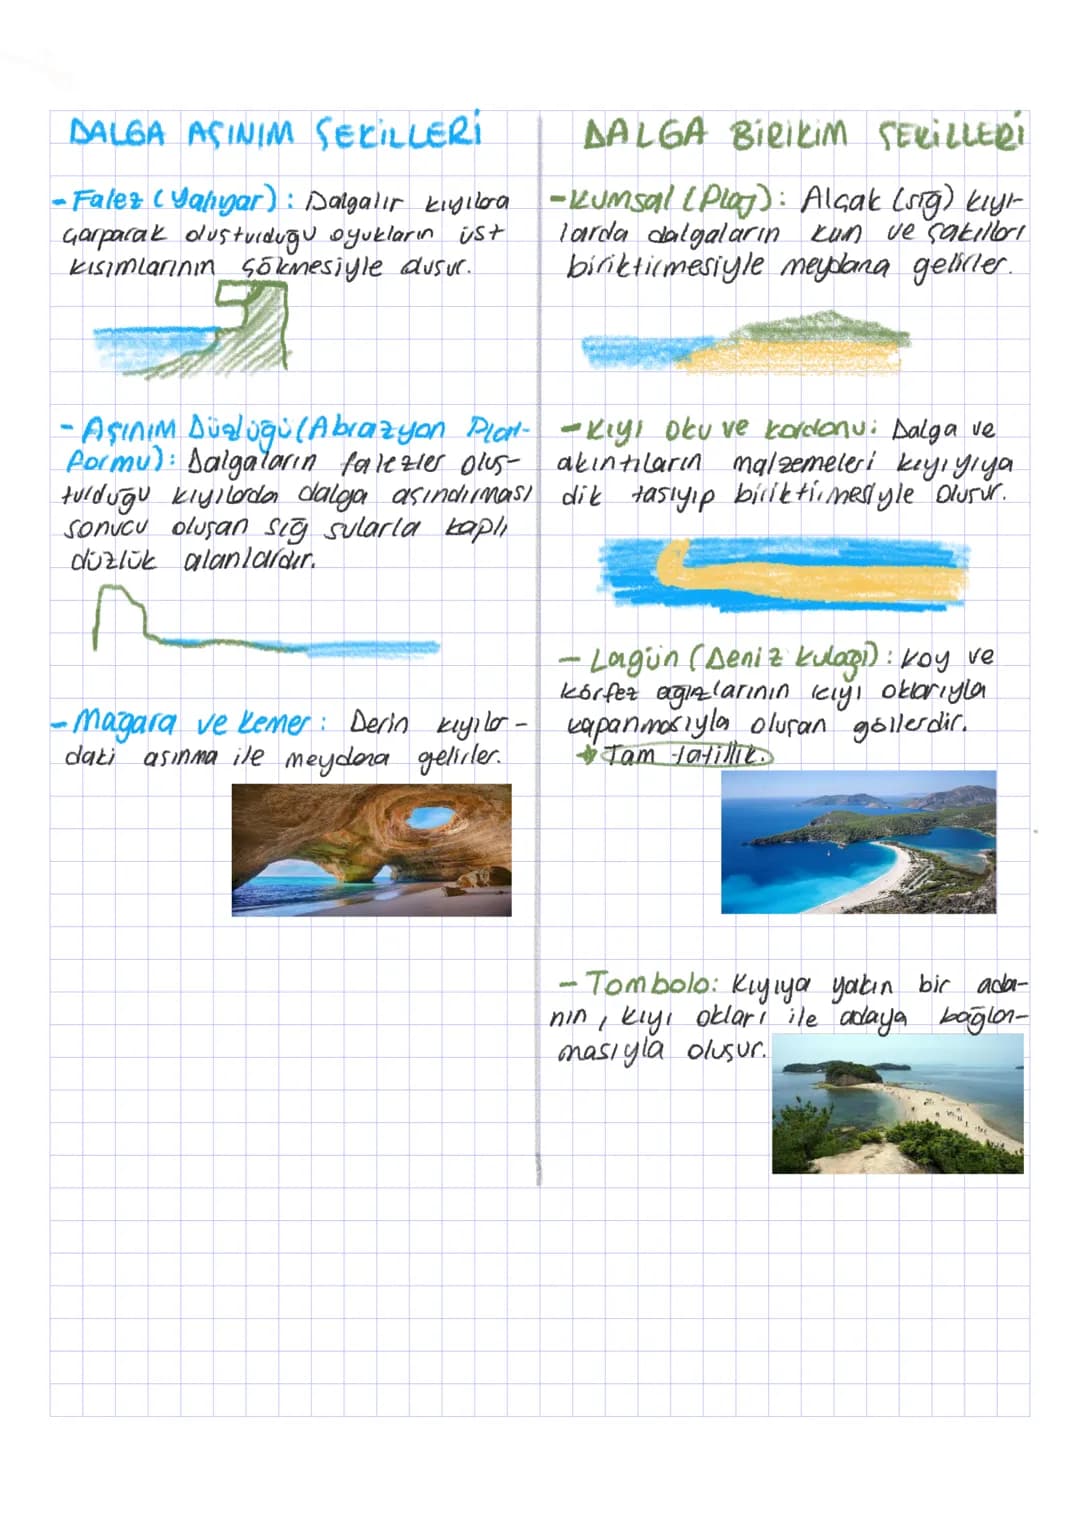 DALGA AŞINIM ŞEKİLLERİ
- Falez (Yalıyar) : Dalgalır kıyılara
çarparak oluşturduğu oyukların üst
kısımlarının çökmesiyle olusur.
- Aşınım Düzlüğü (Abrazyon Plat-
formu): Dalgaların falezler oluş-
turduğu kıyılarda dalga aşındırması
sonucu oluşan sığ sularla kaplı
düzlük alanlardır.
- Mağara ve kemer : Derin kıyılar-
daki aşınma ile meydana gelirler.
DALGA BİRİKİM ŞEKİLLERİ
- Kumsal (Plaj): Alçak (sığ) kıyı-
larda dalgaların kum ve çakılları
biriktirmesiyle meydana gelirler.
- Kıyı oku ve kordonu: Dalga ve
akıntıların malzemeleri kıyıyıya
dik taşıyıp biriktirmesiyle oluşur.
- Lagün (Deniz kulağı) : koy ve
körfez ağızlarının kıyı oklarıyla
kapanmasıyla oluşan göllerdir.
→ Tam tatillik.
- Tombolo: Kıyıya yakın bir ada-
nın , kıyı okları ile adaya bağlan-
masıyla oluşur.